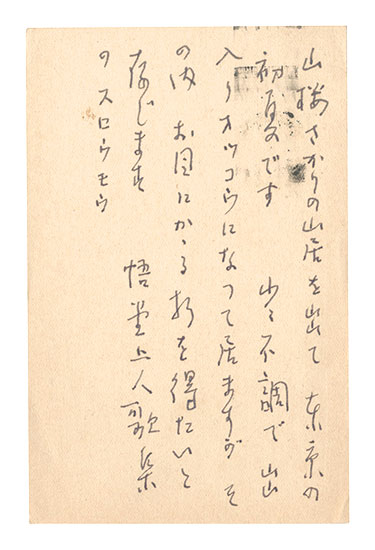 山桜さかりの山居を出て 東京の
初夏です 少々不調で 出
入りオツコウになつて居ますが そ
の内 お目にかゝる折を得たいと
存じます 悟堂上人歌集
のスロウモウ